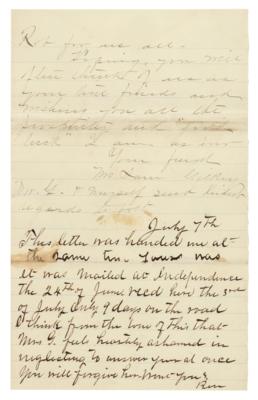 for us all.
Hoping you will
often think of us as
your true friends and
wishing you all the
prosperity and "good
luck" I am as ever
Your friend
Mrs
Mr. G. & myself send kindest
regards to
July 7th
This letter was handed me at
the same time yours was
it was mailed at Independence
the 24th of June recd here the 3rd
of July only 9 days on the road
I think from the tone of this that
Mrs G. felt heartily ashamed in
neglecting to answer your at once
You will forgive her wont you?